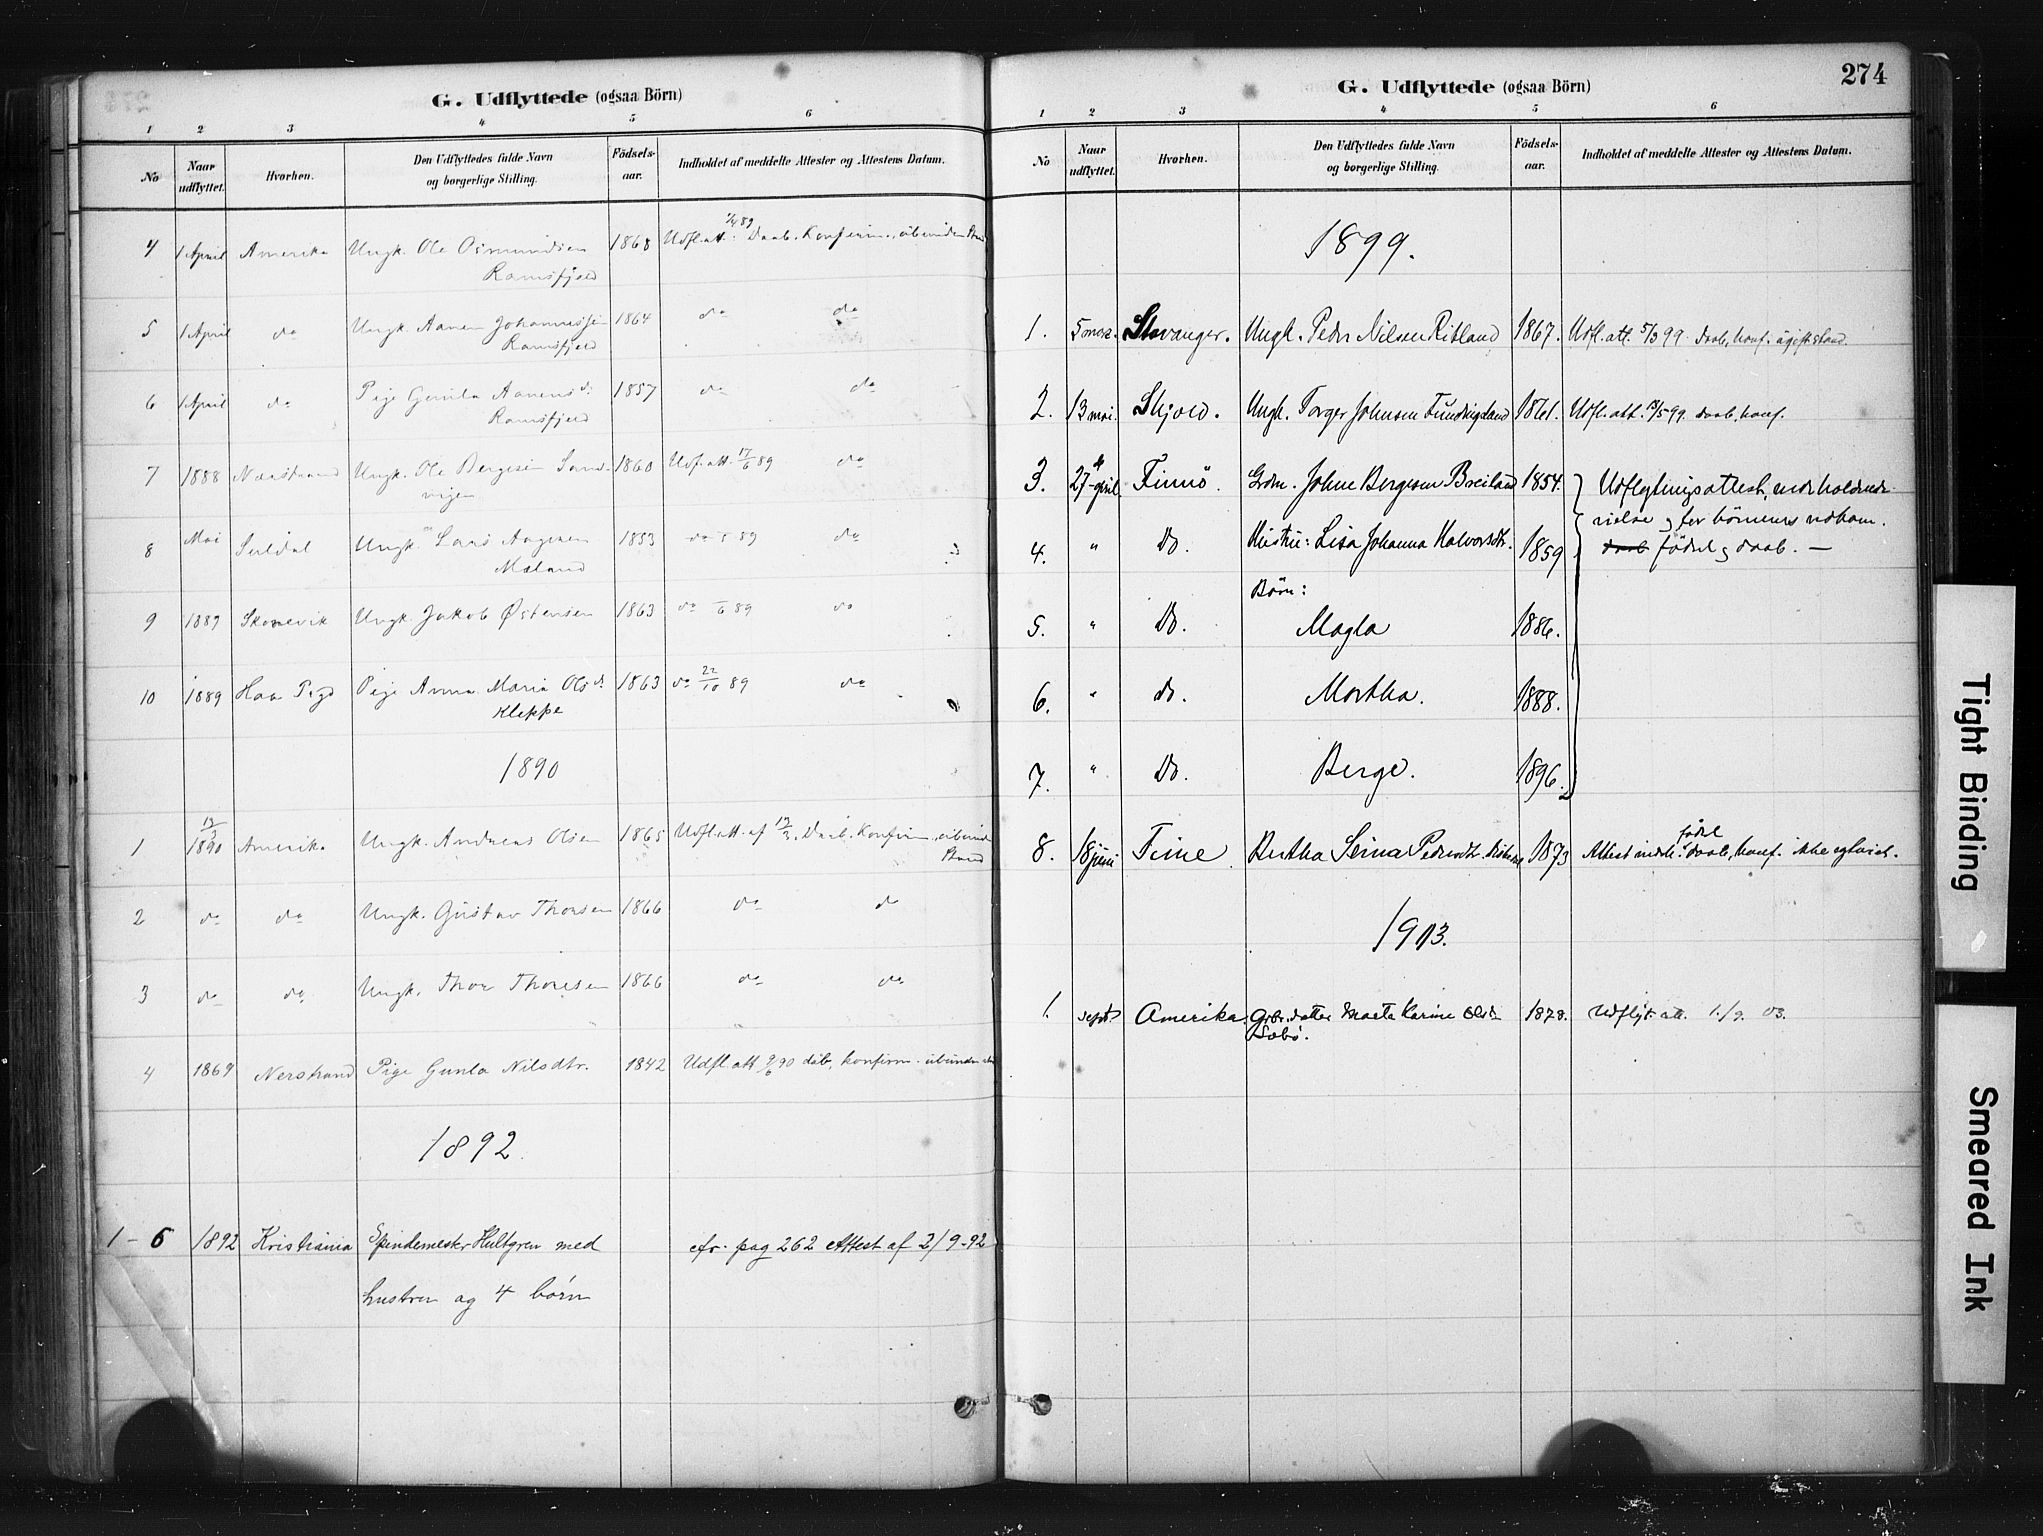 G. Udflyttede (ogsaa Börn)
1 2 3 4 5 6
No Naar udflyttet. Hvorhen. Den Udflyttedes fulde Navn og borgerlige Stilling. Födsels-aar. Indholdet af meddelte Attester og Attestens Datum.
4 1 April Amerika Ungk. Ole Osmundsen 1868 Udfl.att. 89 Daab. Konfirm., ubunden Stand
Ramsfjeld
5 1 April do Ungk. Aanen Johannessen 1864 do do
Ramsfjeld
6 1 April do Pige Gunla Aanensd. 1857 do do
Ramsfjeld
7 1888 Nærstrand Ungk. Ole Bergesen Sand- 1860 Udf.att. 17/6 89 do
vigen
8 Mai Suldal Ungk. Lars Aagesen 1853 do 89 do
Mæland
9 1889 Skonevik Ungk. Jakob Østensen 1863 do /6 89 do
10 1889 Haa Pgd Pige Anna Maria Olsd. 1863 do 22/10 89 do
Kleppe
1890
1 17/3 1890 Amerika Ungk. Andreas Olsen 1865 Udfl.att. af 17/3. Daab. Konfirm., ubunden
Stand
2 do do Ungk. Gustav Thorsen 1866 do do
3 do do Ungk. Thor Thorsen 1866 do do
4 1869 Nerstrand Pige Gunla Nilsdtr. 1842 Udfl.att 9/6 90 dåb, konfirm.
1892.
1-6 1892 Kristiania Spindemester Hultgren med cfr. pag 262 Attest af 2/9-92
hustru og 4 börn
274
G. Udflyttede (ogsaa Börn)
1 2 3 4 5 6
No Naar udflyttet. Hvorhen. Den Udflyttedes fulde Navn og borgerlige Stilling. Födsels-aar. Indholdet af meddelte Attester og Attestens Datum.
1899.
1. 5 mars. Stavanger. Ungk. Peder Nilsen Ritland 1867. Udfl.att. 5/3 99 daab, konf. ugift stand.
2. 13 mai. Skjold. Ungk. Torger Johnsen Fundingsland 1861. Udfl.att. 13/5 99. daab, konf.
3. 27de april Finnö. Grdm. Johne Bergesen Breiland 1854. Udflytningsattest,
4. " Do. Hustru: Lisa Johanna Halvorsdtr. 1859 vielse og for börnenes vedkom.
daab födsel og daab. —
Börn:
5. " Do. Magla 1886.
6. " do. Martha. 1888.
7. " Do. Berge. 1896.
8. 18 juni Time Bertha Serina Pedersdtr. 1873 Attest födsel daab, konf. ikke
1903.
1. sept. Amerika. Grbr.datter Marta Karine Olsdr 1878. Udflyt. att. 1/9. 03.
Sæbö.
Tight Binding
Smeared Ink